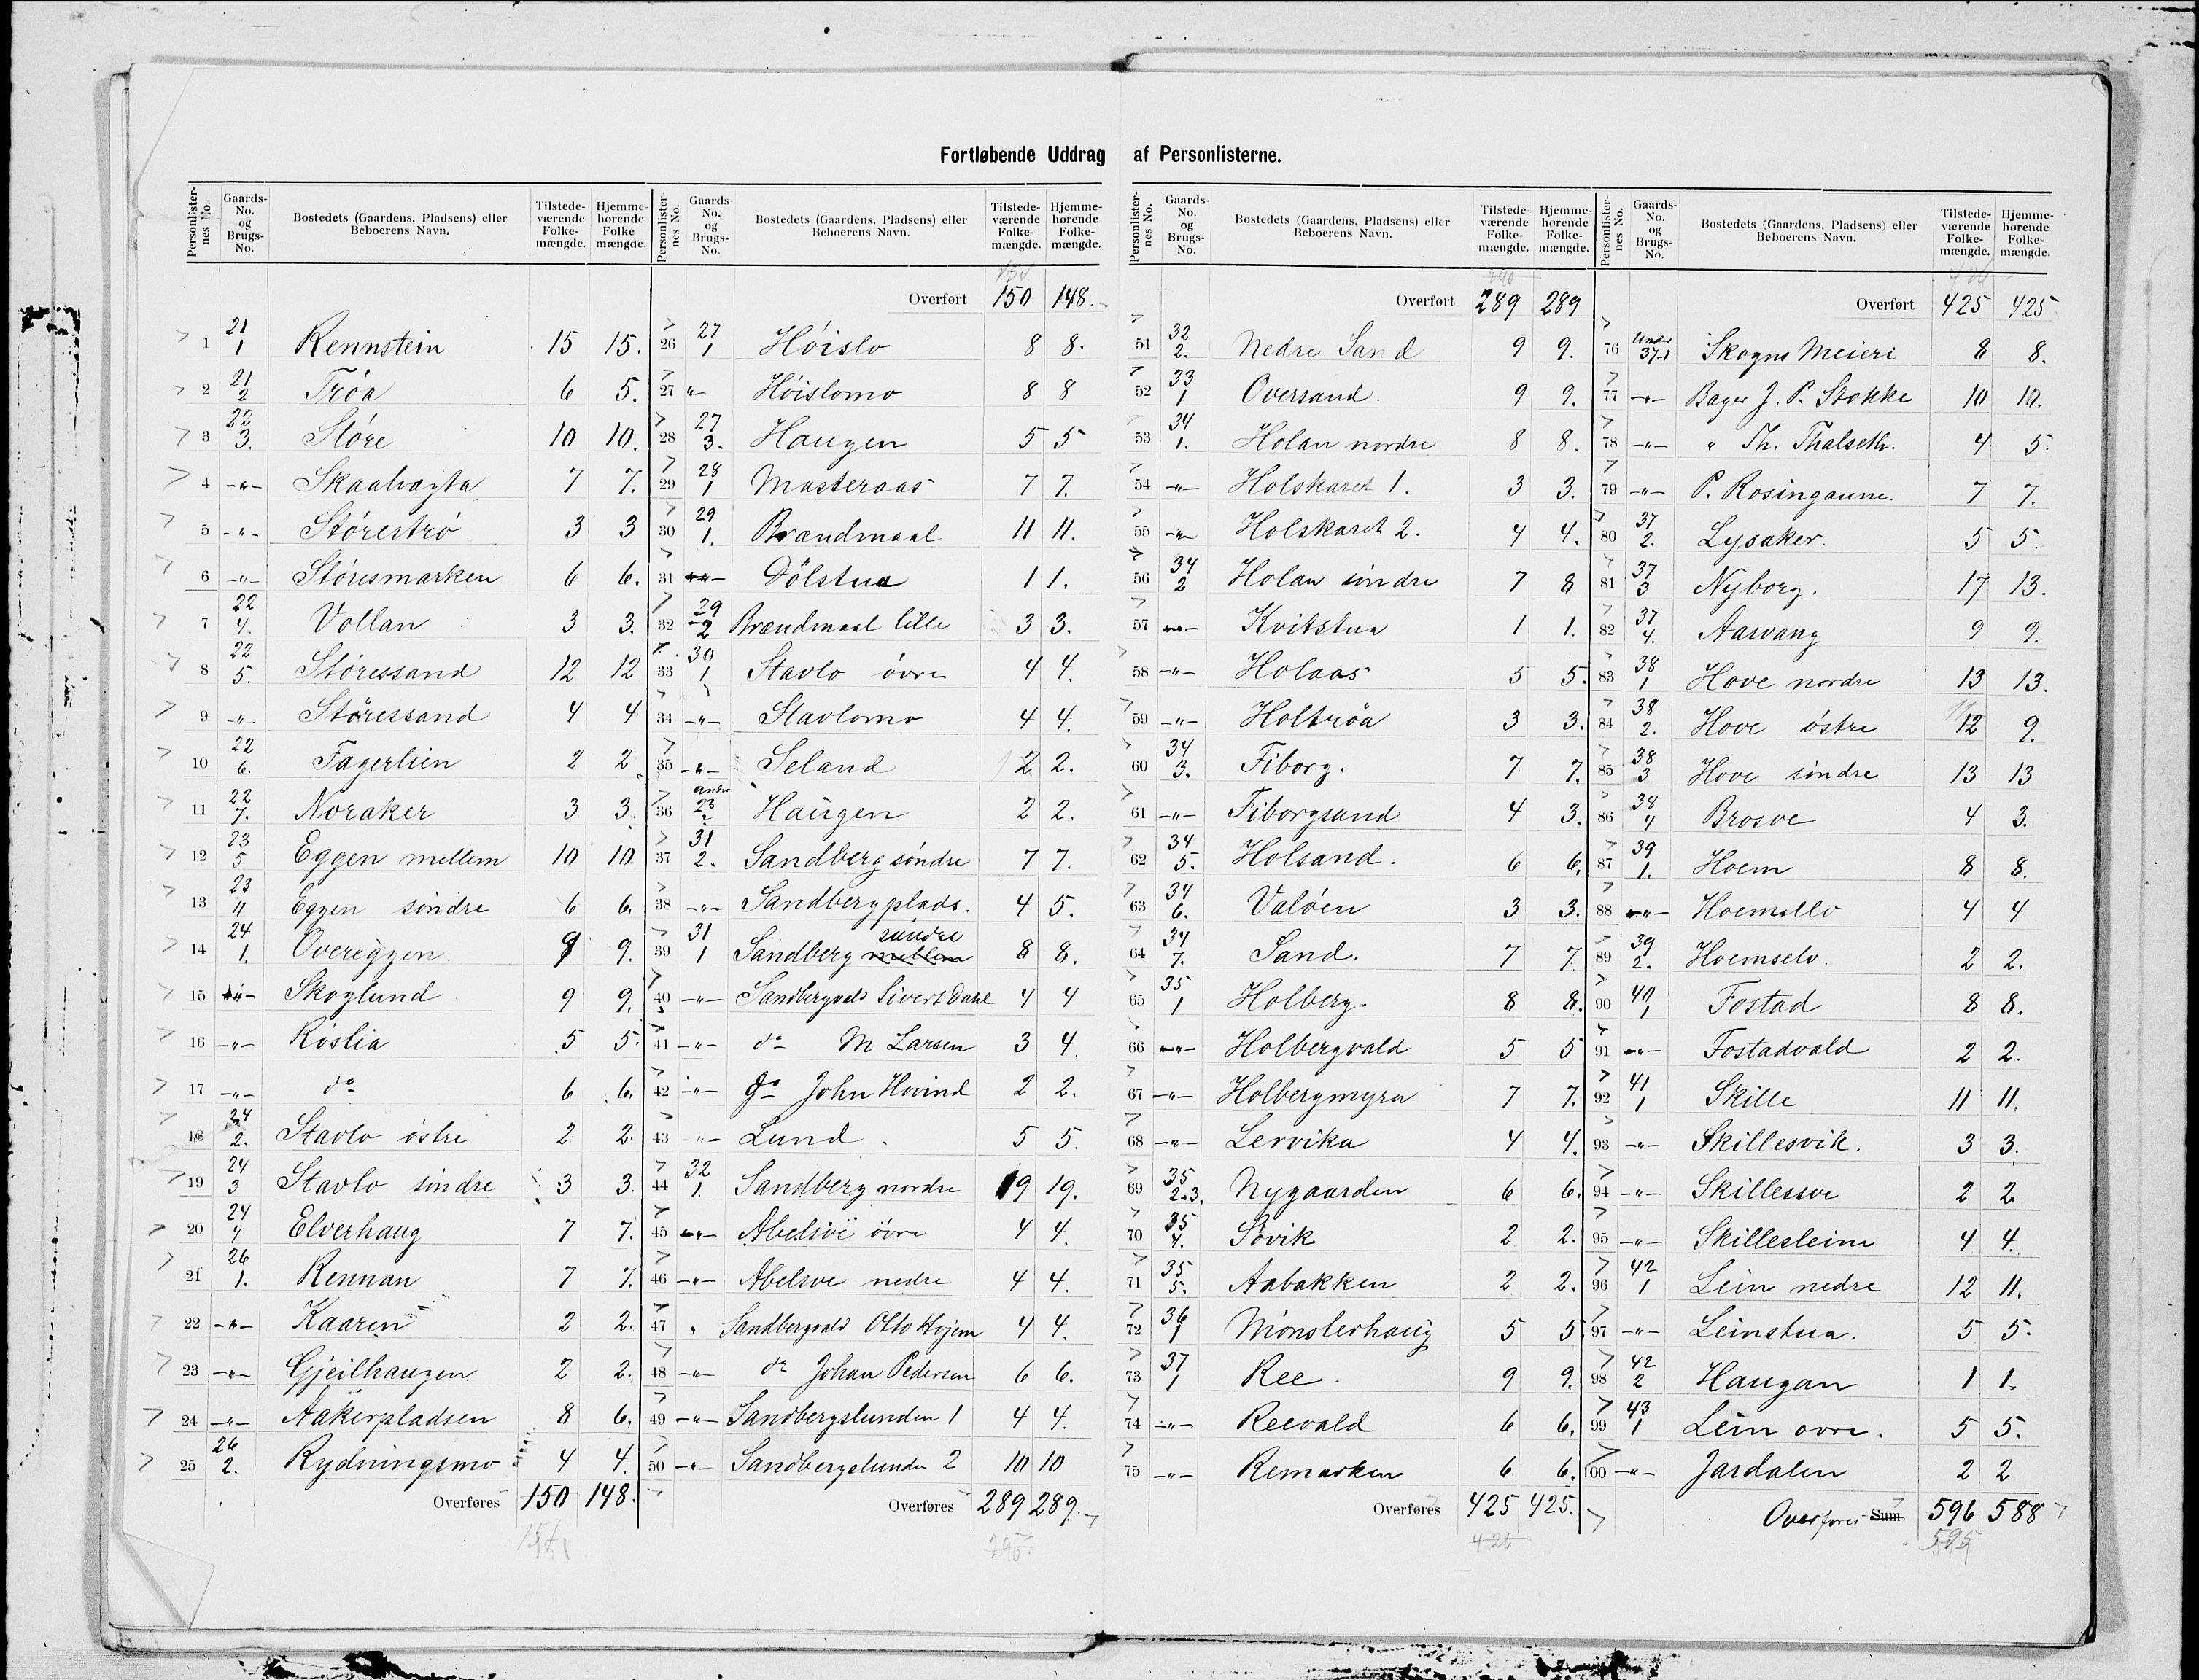 Fortløbende Uddrag af Personlisterne.
Personlister-nes No. | Gaards-No. og Brugs-No. | Bostedets (Gaardens, Pladsens) eller Beboerens Navn. | Tilstede-værende Folke-mængde. | Hjemme-hørende Folke mængde.
1 21/1 Rennstein 15 15.
2 21/2 Trøa 6 5.
3 22/3. Støre 10 10.
4 -"- 7 7.
5 -"- Størestrø 3 3
6 -"- Støresmarken 6 6.
7 22/4. Vollan 3 3.
8 22/5. Støressand 12 12
9 -"- Støressand 4 4
10 22/6. Fagerlien 2 2
11 22/7. Noraker 3 3.
12 23/5 Eggen mellem 10 10.
13 23/11 Eggen søndre 6 6.
14 24/1. Overeggen. 9.
15 -"- Skoglund 9 9.
16 -"- Røslia 5 5.
17 -"- do 6 6.
18 24/2. Stavlo østre 2 2.
19 24/3 Stavlo søndre 3 3.
20 24/4 Elverhaug 7 7.
21 26/1. Rennan 7 7.
22 -"- Kaaren 2 2.
23 -"- Gjeilhaugen 2 2.
24 -"- Aakerpladsen 8 6.
25 26/2. Rydningsmo 4 4.
Overføres 150 148.
Personlister-nes No. | Gaards-No. og Brugs-No. | Bostedets (Gaardens, Pladsens) eller Beboerens Navn. | Tilstede-værende Folke-mængde. | Hjemme-hørende Folke-mængde.
Overført 150 148.
26 27/1 Høislo 8 8.
27 "- Høislomo 8 8
28 27/3. Haugen 5 5
29 28/1 Masteraas 7 7.
30 29/1. Brændmaal 11 11.
31 -"- Dølstua 1 1.
32 29/2 Brændmaal lille 3 3.
33 30/1 Stavlo øvre 4 4.
34 -"- Stavlomo 4 4.
35 -"- Seland 2 2.
36 23 Haugen 2 2.
37 31/2. Sandberg søndre 7 7.
38 -"- Sandbergplads. 4 5.
39 31/1 Sandberg mellem søndre 8 8.
40 -"- Sandbergvald Sivert Dahl 4 4
41 -"- do M Larsen 3 4.
42 -"- do John Hovind 2 2.
43 -"- Lund. 5 5.
44 32/1. Sandberg nordre 19 19.
45 -"- Abelsve øvre 4 4.
46 -"- Abelsve nedre 4 4.
47 " Sandbergvald Otto Hojem 4 4.
48 -"- do Johan Pedersen 6 6.
49 -"- Sandbergslunden 1 4 4.
50 -"- Sandbergslunden 2 10 10
Overføres 289 289.
Personlister-nes No. | Gaards-No. og Brugs-No. | Bostedets (Gaardens, Pladsens) eller Beboerens Navn. | Tilstede-værende Folke-mængde. | Hjemme-hørende Folke-mængde.
Overført 289 289
51 32/2. Nedre Sand 9 9.
52 33/1 Oversand. 9 9.
53 34/1. Holan nordre 8 8.
54 -"- Holskaret 1. 3 3.
55 -"- Holskaret 2. 4 4.
56 34/2 Holan søndre 7 8
57 -"- Kvitstua 1 1.
58 -"- Holaas 5 5.
59 -"- Holtrøa 3 3.
60 34/3. Fiborg. 7 7.
61 -"- Fiborgsand 4 3.
62 34/5. Holsand. 6 6.
63 34/6. Valøen 3 3.
64 34/7. Sand. 7 7
65 35/1 Holberg. 8 8.
66 -"- Holbergvald 5 5
67 -"- Holbergmyra 7 7.
68 -"- Lervika 4 4.
69 35/2.3. Nygaarden 6 6.
70 35/4. Søvik 2 2.
71 35/5. Aabakken 2 2.
72 36/1 Mønsterhaug 5 5
73 37/1 Ree. 9 9.
74 -"- Reevald 6 6.
75 -"- Remarken 6 6.
Overføres 425 425.
Personlister-nes No. | Gaards-No. og Brugs-No. | Bostedets (Gaardens, Pladsens) eller Beboerens Navn. | Tilstede-værende Folke-mængde. | Hjemme-hørende Folke-mængde.
Overført 425 425
76 Under 37-1 Skogns Meieri 8 8.
77 -"- Bager J. P. Stokke 10 10.
78 -"- " Th. Thalseth. 4 5.
79 -"- P. Rosingaune. 7 7.
80 37/2. Lysaker. 5 5.
81 37/3 Nyborg. 17 13.
82 37/4. Aarvang 9 9.
83 38/1 Hove nordre 13 13.
84 38/2. Hove østre 12 9.
85 38/3 Hove søndre 13 13
86 38/4 Brosve 4 3.
87 39/1. Hoem 8 8.
88 -"- Hoemsllo 4 4
89 39/2. Hoemselv. 2 2.
90 40/1 Fostad 8 8.
91 -"- Fostadvald 2 2.
92 41/1 Skille 11 11.
93 -"- Skillesvik. 3 3.
94 -"- Skillessve 2 2
95 -"- Skillesleim 4 4.
96 42/1 Lein nedre 12 11.
97 -"- Leinstua. 5 5.
98 42/2 Haugan 1 1.
99 43/1 Lein øvre. 5 5.
100 -"- Jardalen 2 2
Overføres Sum 596 588
595